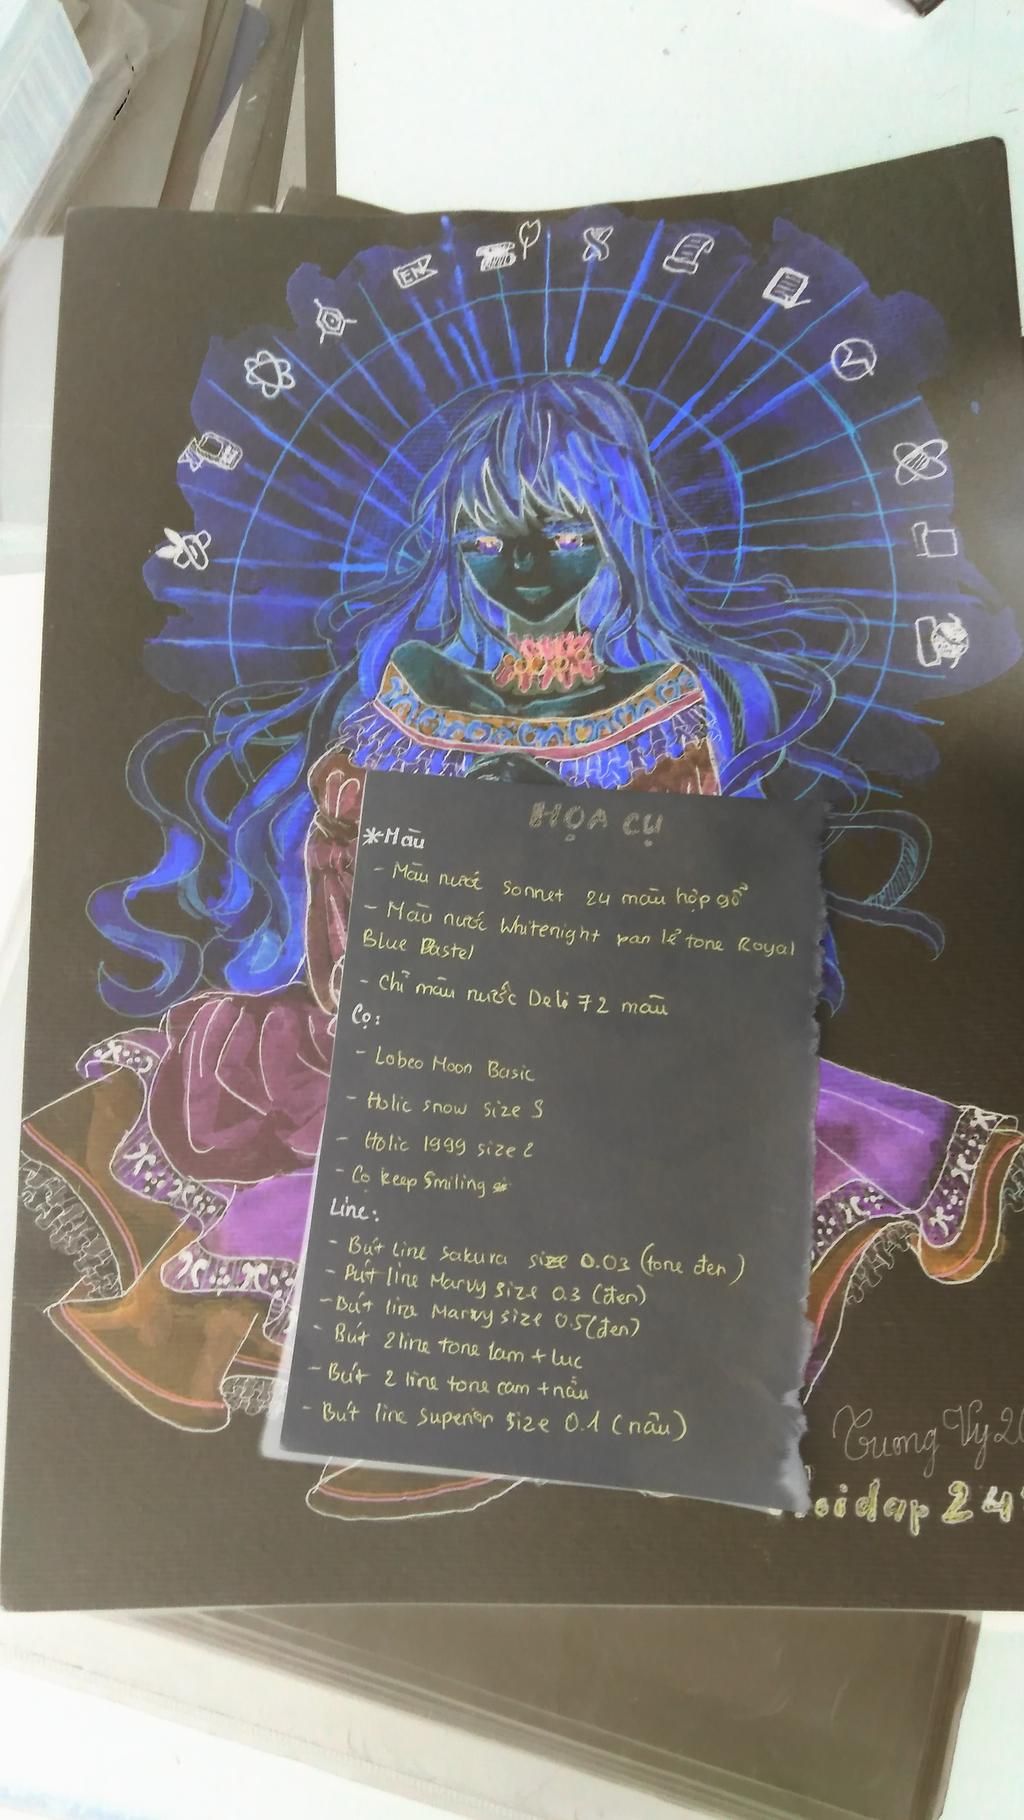 EN
HỌA CỤ
*Màu
- Màu nước Sonnet 24 màu hộp gỗ
- Màu nước Whitenight pan lẻ tone Royal
Blue Pastel
- Chì màu nước Deli 72 màu
Cọ:
- Lobeo Moon Basic
- Holic snow size S
- Holic 1999 size 2
- Cọ keep smiling
Line:
- Bút line sakura size 0.03 (tone đen)
- Bút line Marvy size 0.3 (đen)
- Bút line Marvy size 0.5 (đen)
- Bút 2 line tone lam + lục
- Bút 2 line tone cam + nâu
- Bút line Superior size 0.1 (nâu)
Tường Vy 20
oidap 24